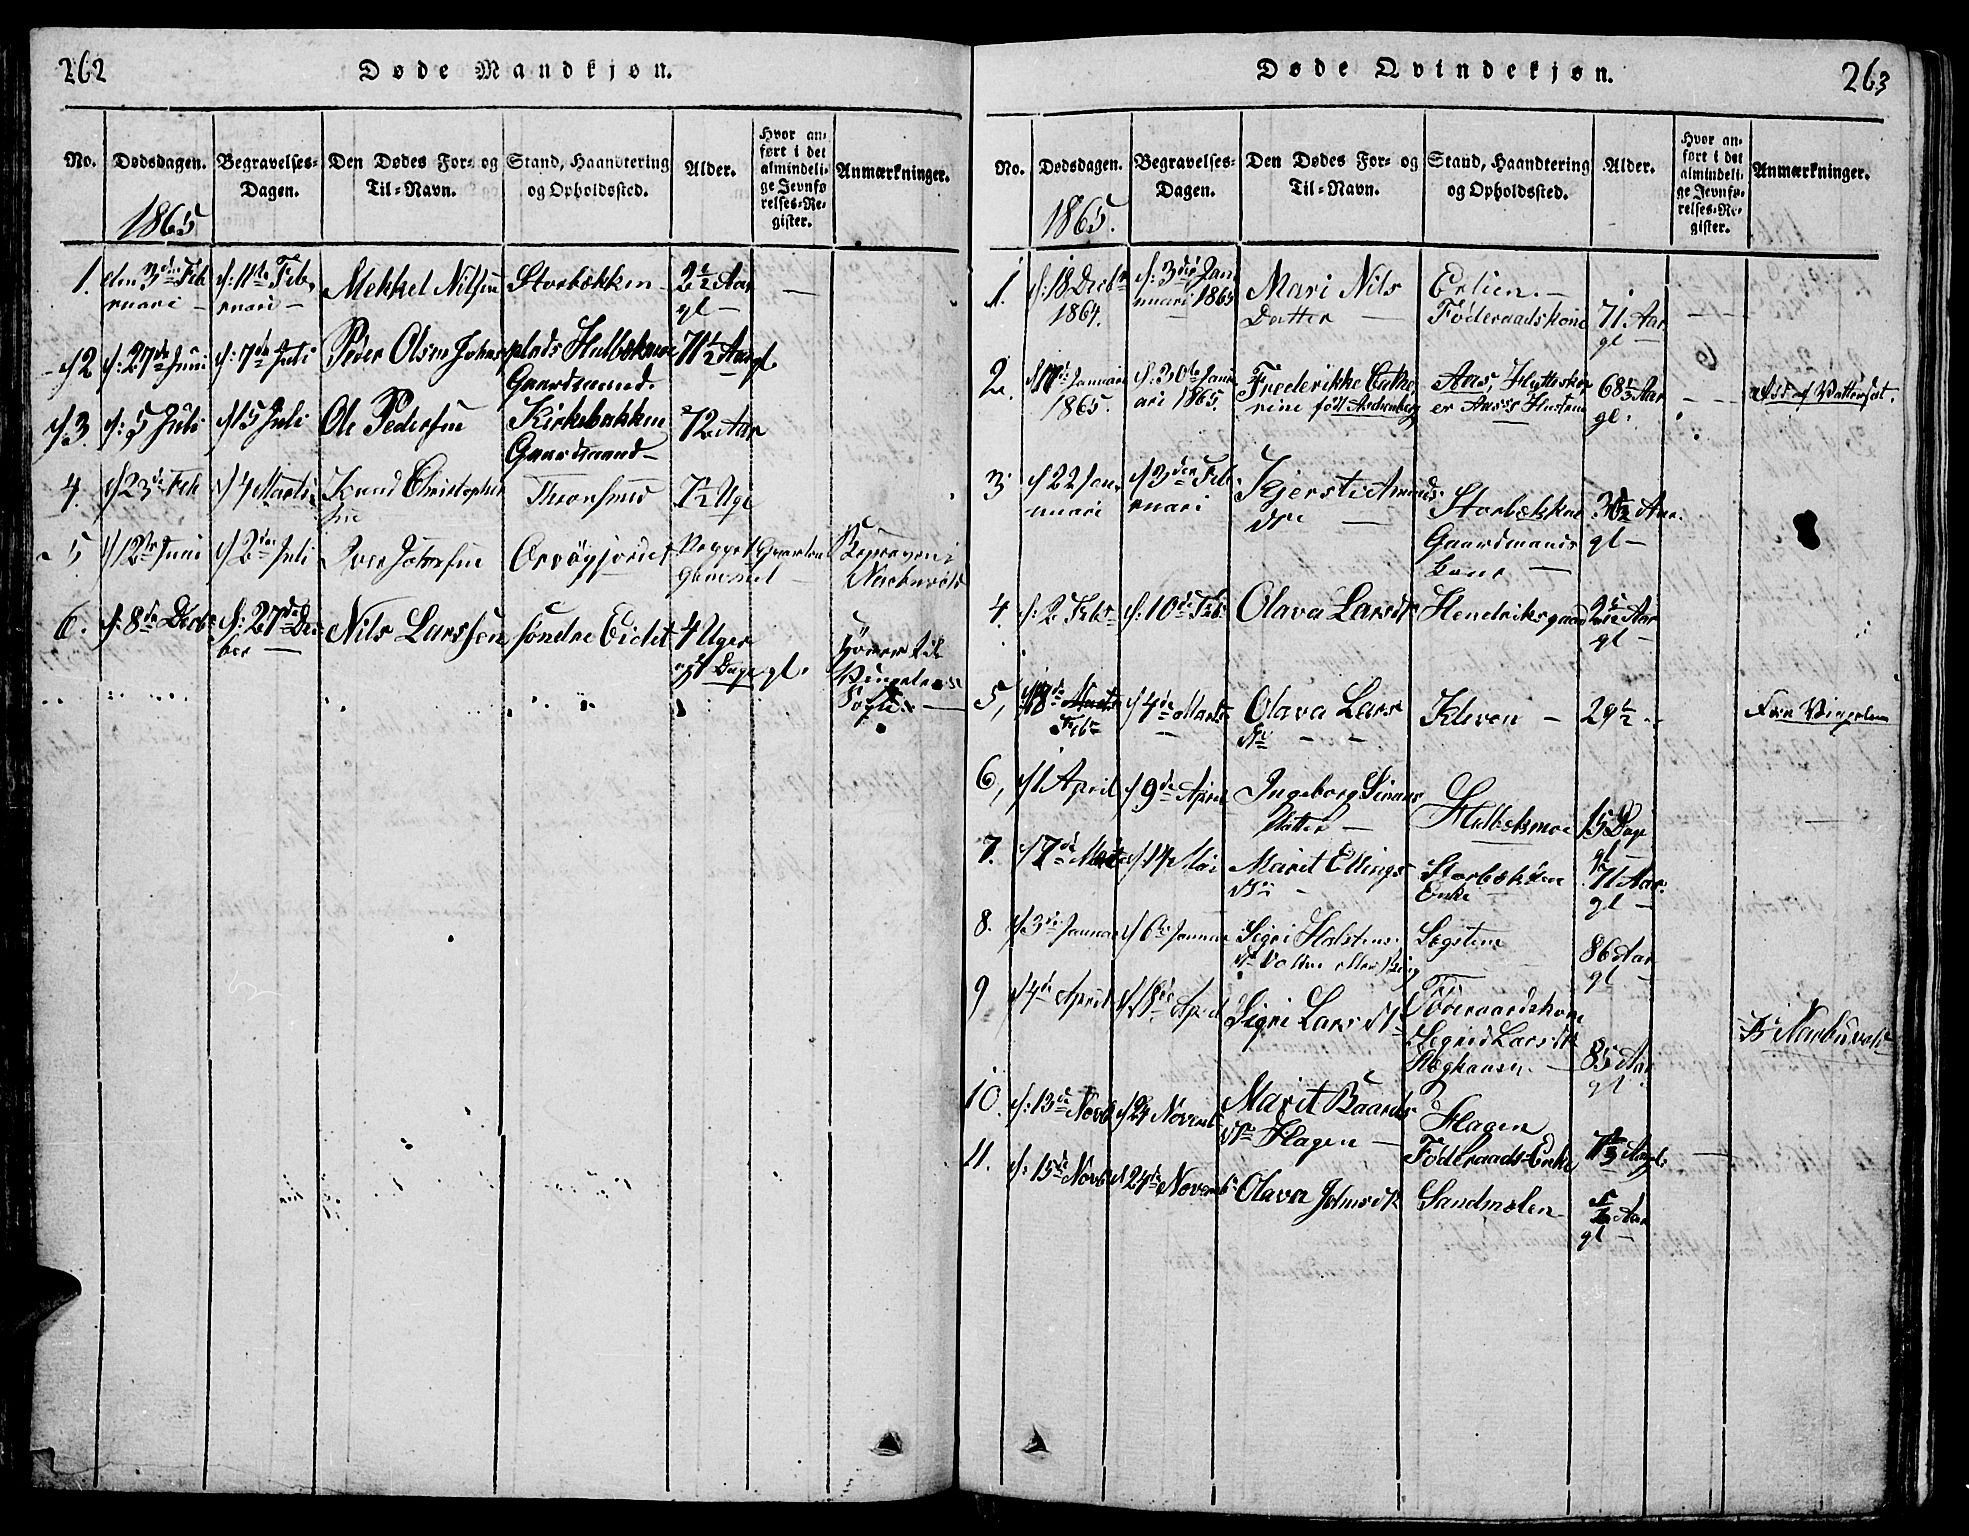 262
Døde Mandkjøn.
No.
Dødsdagen.
1865
Begravelses-
Dagen.
Den Dødes For- og
Til-Navn.
Stand, Haandtering
og Opholdssted.
Alder.
Hvor an-
ført i det
almindeli-
ge Jevnfø
relses-Re-
gister.
Anmærkninger.
1. den 3die Feb
ruari –
d: 11te Feb
ruari –
Mekkel Nilsen
Storbækken
2½ Aar
gl –
2
d: 27de Juni
d: 7de Juli
Peder Olsen
plads Hulbækmoe
Gaardmand.
71½ Aar gl.
3.
d: 5 Juli
d 15 Juli
Ole Pedersen
Kirkebakken
Gaardmand –
72 Aar
4.
d 23de Feb
d 4 Marts
Knud Christopher
sen
7½ Uge
5
d 12te Juni
d 2den Juli
Iver Johnsen
gammel
Begraven i
Narbuvold
6.
d: 8de Decb
d: 27de De
ber –
Nils Larssen
søndre Eidet
4 Uger
og 1 Dage gl.
hører til
Vingelens
Sogn. –
263
Døde Qvindekjøn.
No.
Dødsdagen.
1865.
Begravelses-
Dagen.
Den Dødes For- og
Til-Navn.
Stand, Haandtering
og Opholdssted.
Alder.
Hvor an-
ført i det
almindeli-
ge Jevnfø-
relses-Re-
gister.
Anmærkninger.
1.
d: 18 Decbr
1864.
d: 3die Jan
nuari 1865
Mari Nils
Datter –
Erlien. –
Føderaadskone
71 Aar
gl –
2.
d 17de Januari
1865.
d: 30te Janu
ari 1865.
Frederikke Cathe
rine født
Aas, Hytteskri
er Aas's Hustru
68½ Aar
gl.
3
d 22 Jan
nuari
d 3den Feb
ruari
Kjersti Amunds
dtr –
Storbækken
Gaardmands
kone –
gl –
4.
d: 2 Febr
d: 10de Feb.
Olava Larsdtr
Hendriksgaard
2½ Aar
gl –
5,
18de Marts
Febr
d 4de Marts
Olava Lars
dtr – –
Kleven –
29½
Fra Vingelen
6,
d 1 April
d 9de April
Ingeborg Simens
Datter –
Hulbekmoe
15 Dage
gl
7.
d 7de
d 14 Mai
Marit Ellings
dtr –
Storbækken
Enke
71 Aar.
gl –
8.
d 3de Januar
d 6te Januar
Sigri Holstens
86 Aar
gl –
9
d 4de April
April
Sigri Larsdtr
Føderaadskone
Sigrid Larsdtr
85 Aar
gl
I Narbuvold
10.
d: 13de Novb
d 24 Novemb
Marit Baards
dtr Hagen –
Hagen
Føderaads-Enke
11.
d: 15de Novb
d 24de Novemb
Olava Johnsdtr
Sandmælen
Aar
gl –